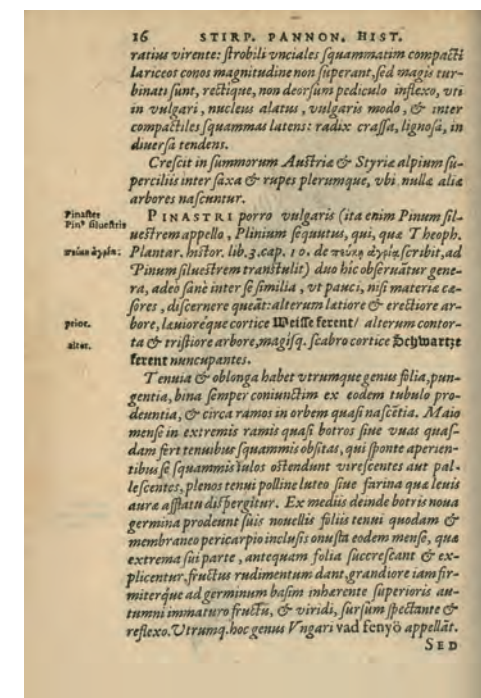 16 STIRP. PANNON. HIST.
ratius virente: ſtrobili vnciales ſquammatim compacti
lariceos conos magnitudine non ſuperant, ſed magis tur-
binati ſunt, rectique, non deorſum pediculo inflexo, vti
in vulgari, nucleus alatus, vulgaris modo, & inter
compactiles ſquammas latens: radix craſſa, lignoſa, in
diuerſa tendens.
Creſcit in ſummorum Auſtriæ & Styriæ alpium ſu-
perciliis inter ſaxa & rupes plerumque, vbi nullæ aliæ
arbores naſcuntur.
Pinaſter
Pinꝰ ſilueſtris
PINASTRI porro vulgaris (ita enim Pinum ſil-
ueſtrem appello, Plinium ſequutus, qui, quæ Theoph.
πεύκη ἀγρία:
Plantar. hiſtor. lib. 3. cap. 10. de πεύκῃ ἀγρίᾳ ſcribit, ad
Pinum ſilueſtrem tranſtulit) duo hic obſeruãtur gene-
ra, adeò ſanè inter ſe ſimilia, vt pauci, niſi materiæ cæ-
ſores, diſcernere queãt: alterum latiore & erectiore ar-
prior.
bore, læuioréque cortice Weiſſe ferent/ alterum contor-
alter.
ta & triſtiore arbore, magiſq. ſcabro cortice Schwartze
ferent nuncupantes.
Tenuia & oblonga habet vtrumque genus folia, pun-
gentia, bina ſemper coniunctim ex eodem tubulo pro-
deuntia, & circa ramos in orbem quaſi naſcẽtia. Maio
menſe in extremis ramis quaſi botros ſiue vuas quaſ-
dam fert tenuibus ſquammis obſitas, qui ſponte aperien-
tibus ſe ſquammis iulos oſtendunt vireſcentes aut pal-
leſcentes, plenos tenui polline luteo ſiue farina quæ leuis
auræ afflatu diſpergitur. Ex mediis deinde botris noua
germina prodeunt ſuis nouellis foliis tenui quodam &
membraneo pericarpio incluſis onuſta eodem menſe, quæ
extrema ſui parte, antequam folia ſuccreſcant & ex-
plicentur, fructus rudimentum dant, grandiore iam fir-
miterque ad germinum baſim inhærente ſuperioris au-
tumni immaturo fructu, & viridi, ſurſum ſpectante &
reflexo. Vtrumq. hoc genus Vngari vad fenyö appellãt.
SED